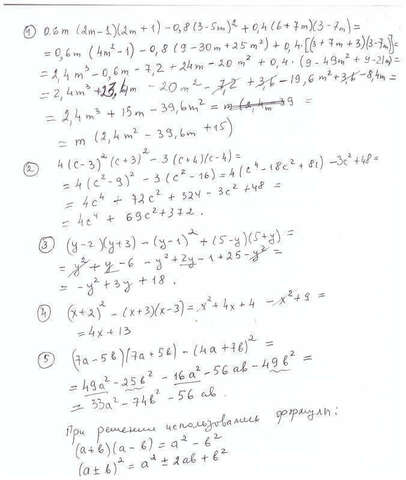 ① 0.6m (2m-1)(2m+1) - 0,8(3-5m)² + 0,4(6+7m)(3-7m)=
= 0,6m (4m²-1) - 0,8 (9-30m+25m²) + 0,4·[(3+7m+3)(3-7m)]=
= 2,4m³ - 0,6m - 7,2 + 24m - 20m² + 0,4·(9-49m²+9-21m)=
= 2,4m³ + 23,4m - 20m² - 7,2 + 3,6 - 19,6m² + 3,6 - 8,4m=
= 2,4m³ + 15m - 39,6m² =
= m (2,4m² - 39,6m + 15)
② 4(c-3)²(c+3)² - 3(c+4)(c-4)=
= 4(c²-9)² - 3(c²-16) = 4(c⁴-18c²+81) - 3c²+48=
= 4c⁴ + 72c² + 324 - 3c² + 48 =
= 4c⁴ + 69c² + 372.
③ (y-2)(y+3) - (y-1)² + (5-y)(5+y) =
= y² + y - 6 - y² + 2y - 1 + 25 - y² =
= -y² + 3y + 18.
④ (x+2)² - (x+3)(x-3) = x² + 4x + 4 - x² + 9 =
= 4x + 13
⑤ (7a-5b)(7a+5b) - (4a+7b)² =
= 49a² - 25b² - 16a² - 56ab - 49b² =
= 33a² - 74b² - 56ab.
При решении использовались формулы:
(a+b)(a-b) = a² - b²
(a±b)² = a² ± 2ab + b²